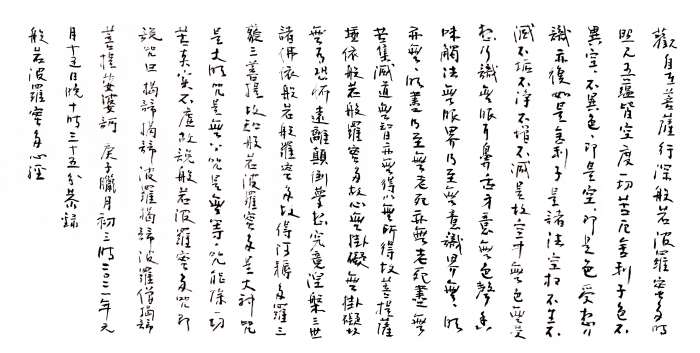 觀自在菩薩行深般若波羅蜜多時
照見五蘊皆空度一切苦厄舍利子色不
異空空不異色色即是空空即是色受想行
識亦復如是舍利子是諸法空相不生不
滅不垢不淨不增不減是故空中無色無受
想行識無眼耳鼻舌身意無色聲香
味觸法無眼界乃至無意識界無無明
亦無無明盡乃至無老死亦無老死盡無
苦集滅道無智亦無得以無所得故菩提薩
埵依般若波羅蜜多故心無掛礙無掛礙故
無有恐怖遠離顛倒夢想究竟涅槃三世
諸佛依般若波羅蜜多故得阿耨多羅三
藐三菩提故知般若波羅蜜多是大神咒
是大明咒是無上咒是無等等咒能除一切
苦真實不虛故說般若波羅蜜多咒即
說咒曰揭諦揭諦波羅揭諦波羅僧揭諦
菩提薩婆訶 庚子臘月初三時二〇二一年元
月十五日晚十時三十五分恭錄
般若波羅蜜多心經